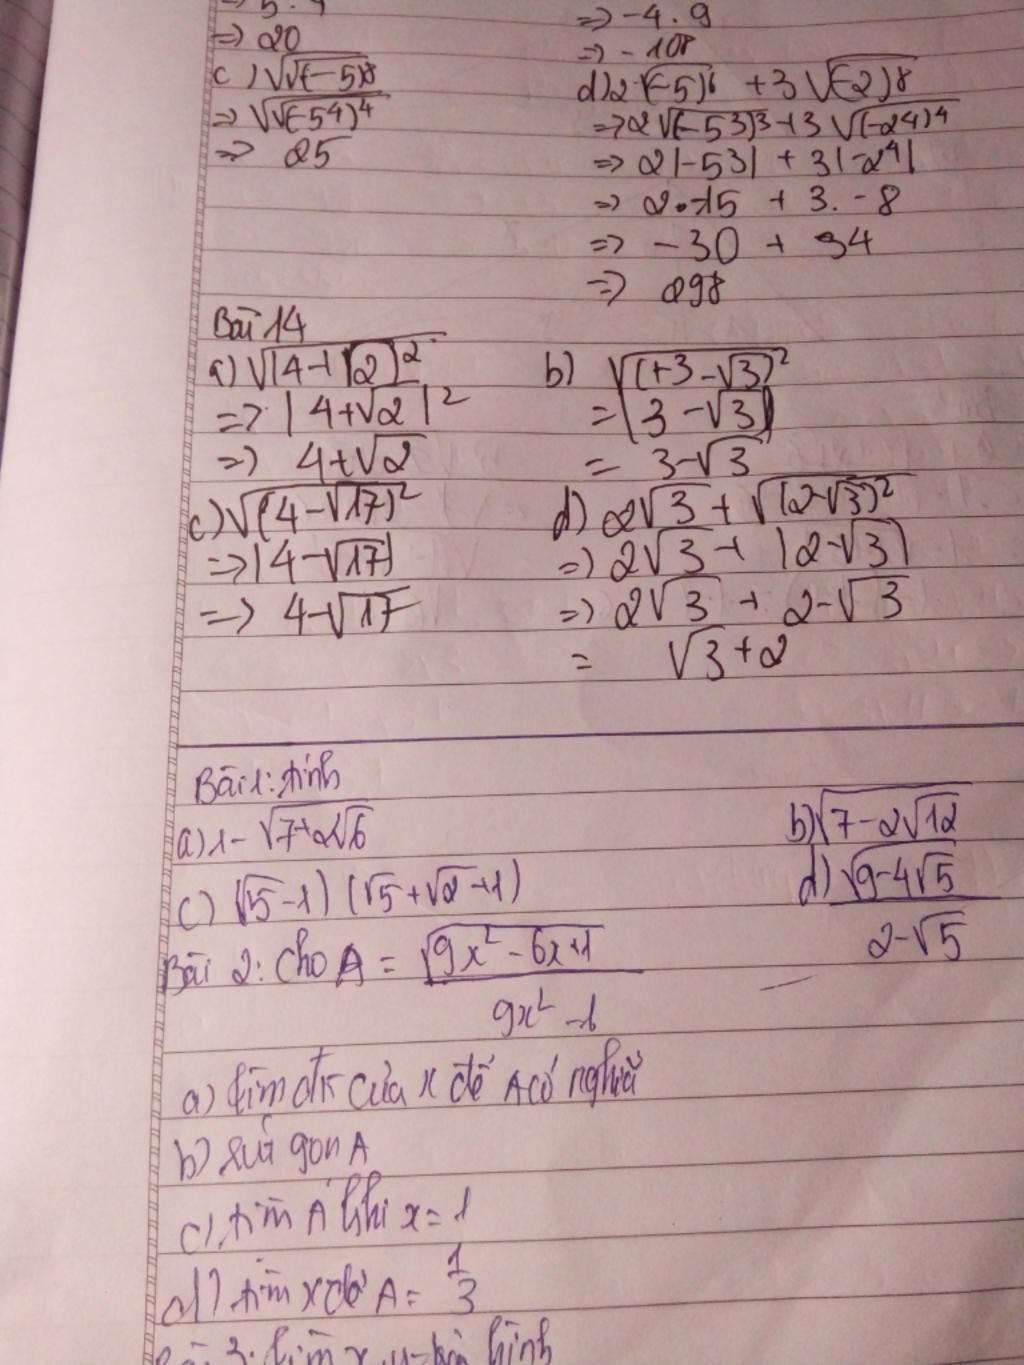 => 5.4
=> -4.9
=> 20
=> -108
c) √√(-5)8
d) 2√(-5)⁶ + 3√(-2)8
=> √√(-5⁴)⁴
=> 2√(-53)3 + 3√(-24)4
=> 25
=> 2|-53| + 3|-2⁴|
=> 2.-15 + 3.-8
=> -30 + 34
=> 298
Bài 14
a) √(4+√2)²
b) √(+3-√3)²
=> |4+√2|²
= |3-√3|
=> 4+√2
= 3-√3
c) √(4-√17)²
d) 2√3 + √(2-√3)²
=> |4-√17|
=> 2√3 + |2-√3|
=> 4-√17
=> 2√3 + 2-√3
= √3+2
Bài 1: tính
a) 1-√7+2√6
b) √7-2√12
c) (√5-1) (√5+√2+1)
d) √9-4√5 / 2-√5
Bài 2: Cho A = √9x²-6x+1 / 9x²-1
a) tìm đk của x để A có nghĩa
b) rút gọn A
c) tìm A khi x = 1
d) tìm x để A = 1/3
Bài 3: tìm x,